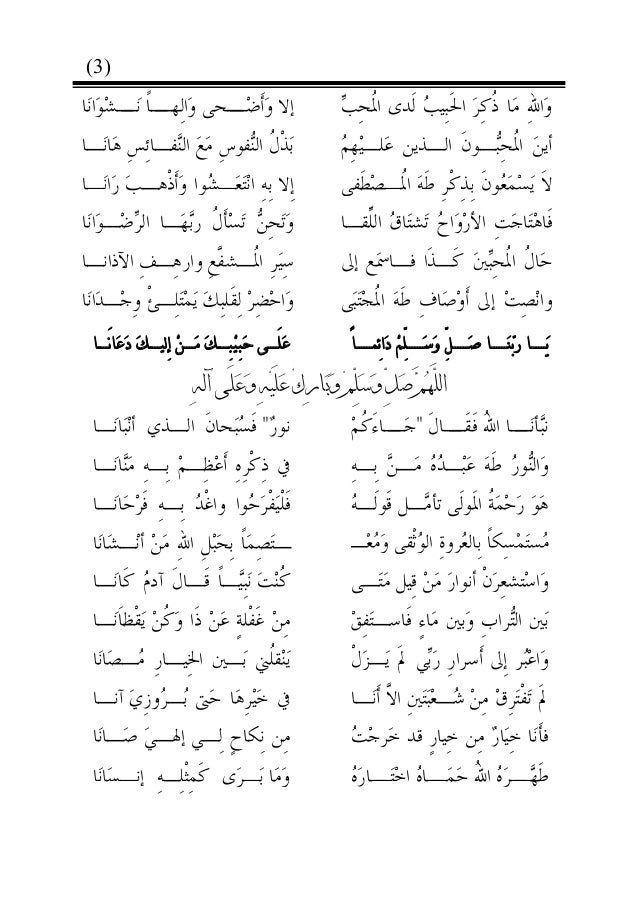 (3)
وَاللهِ مَا ذُكِرَ الحَبِيبُ لَدى المُحِبِّ إلا وَأَضْحى وَالِهاً نَشْوَانَا
أينَ المُحِبُّونَ الذين عَلَيْهِمُ بَذْلُ النُّفوسِ مَعَ النَّفائِسِ هَانَا
لاَ يَسْمَعُونَ بِذِكْرِ طَهَ المُصْطَفى إلا بِهِ انْتَعَشُوا وَأَذْهبَ رَانَا
فَاهْتَاجَتِ الأرْوَاحُ تَشتَاقُ اللِّقا وَتَحِنُّ تَسْأَلُ ربَّهَا الرِّضْوَانَا
حَالُ المُحِبِّينَ كَذَا فاسمَع إلى سِيَرِ المُشفَّعِ وارهِفِ الآذانا
وانْصِتْ إلى أَوْصَافِ طَهَ المُجْتَبَى وَاحْضِرْ لِقَلبِكَ يَمْتَلِئْ وِجْدَانَا
يَا ربَّنَا صَلِّ وَسَلِّمْ دَائِماً عَلَى حَبِيْبِكَ مَنْ إليكَ دَعَانَا
اللَّهُمَّ صَلِّ وَسَلِّمْ وَبَارِكْ عَلَيْهِ وَعَلَى آلِهِ
نبَّأنَا اللهُ فَقَالَ "جَاءَكُمْ نورٌ" فَسُبَحانَ الذي أنْبَانَا
وَالنُّورُ طَهَ عَبْدُهُ مَنَّ بِهِ في ذِكْرِهِ أَعْظِمْ بِهِ مَنَّانَا
هَوَ رَحْمَةُ المَولَى تأمَّل قَولَهُ فَلْيَفْرَحُوا واغْدُ بِهِ فَرْحَانَا
مُستَمْسِكاً بالعُروةِ الوُثْقى وَمُعْـ ـتَصِمَاً بِحَبْلِ اللهِ مَنْ أنْشَانَا
وَاسْتشعِرَنْ أنوارَ مَنْ قيل مَتَى كُنْتَ نَبِيَّاً قَالَ آدمُ كَانَا
بَين التُّرابِ وَبين مَاءٍ فَاستَفِقْ مِنْ غَفْلةٍ عَنْ ذَا وَكُنْ يَقْظَانَا
وَاعْبُر إلى أسرارِ رَبِّي لَمْ يَزَلْ يَنْقُلُنِي بَين الخِيارِ مُصَانَا
لَمْ تَفْتَرِقْ مِنْ شُعْبَتَينِ الاَّ أَنَا في خَيْرِهَا حَتى بُرُوزِيَ آنا
فأنَا خِيَارٌ من خِيارٍ قد خَرَجْتُ مِن نِكاحٍ لي إلهي صَانَا
طَهَّرَهُ اللهُ حَمَاهُ اخْتَارَهُ وَمَا بَرَى كَمِثْلِهِ إنسَانَا